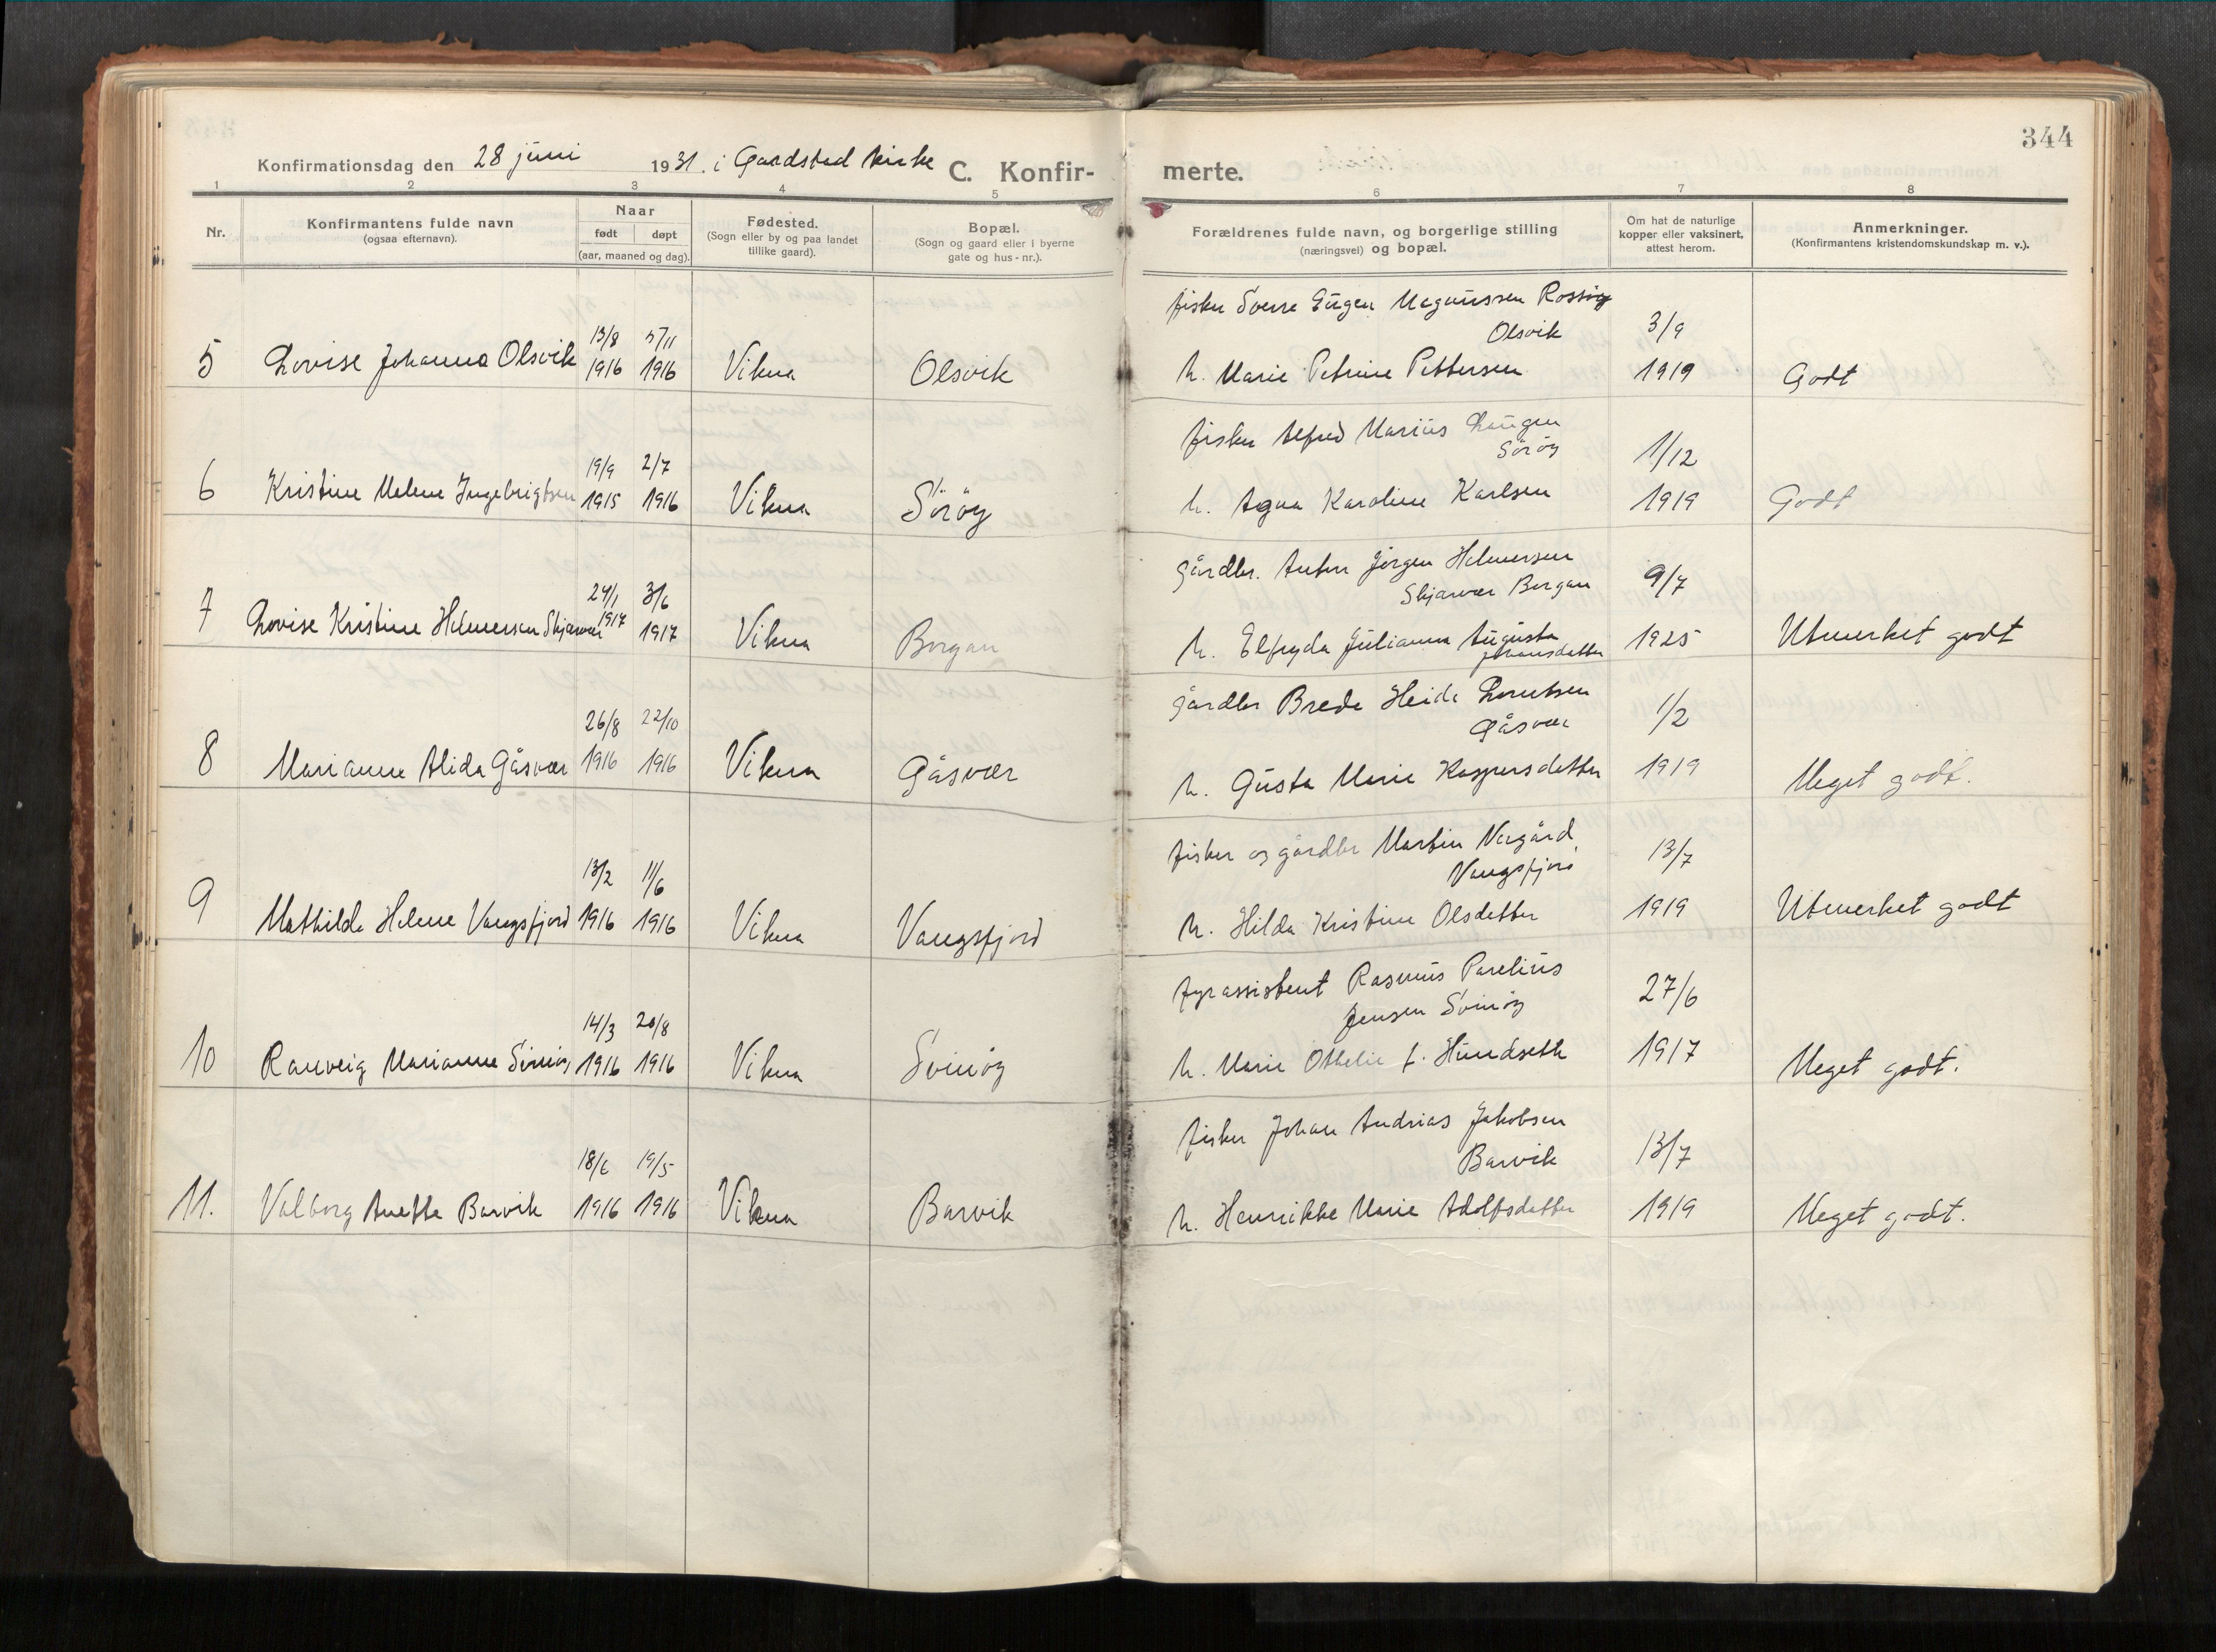 344
Konfirmationsdag den 28 juni 1931. i Gardstad kirke C. Konfir- merte.
1 2 3 4 5 6 7 8
Nr.
Konfirmantens fulde navn
(ogsaa efternavn).
Naar
født døpt
(aar, maaned og dag).
Fødested.
(Sogn eller by og paa landet
tillike gaard).
Bopæl.
(Sogn og gaard eller i byerne
gate og hus-nr.).
Forældrenes fulde navn, og borgerlige stilling
(næringsvei) og bopæl.
Om hat de naturlige
kopper eller vaksinert,
attest herom.
Anmerkninger.
(Konfirmantens kristendomskundskap m. v.).
fisker Sverre Eugen Magnussen Rossøy
13/8 Olsvik 3/9
5 Lovise Johanna Olsvik 1916 1916 Vikna Olsvik h. Marie Petrine Pettersen 1919 Godt
fisker Alfred Marius
19/9 2/7 Sörøy 1/12
6 Kristine Melene Ingebrigtsen 1915 1916 Vikna Sörøy h. Agna Karoline Karlsen 1919 Godt
gårdbr. Anton Jörgen Helmersen
24/1 3/6 Skjærvær Borgan 9/7
7 Lovise Kristine Helmersen Skjærvær 1917 1917 Vikna Borgan h. Elfryda Julianna Augusta 1925 Utmerket godt
gårdbr Brede Heide Lorntsen
26/8 22/10 Gåsvær 1/2
8 Marianne Alida Gåsvær 1916 1916 Vikna Gåsvær h. Gusta Marie Kaspersdatter 1919 Meget godt.
fisker og gårdbr Martin Norgård,
13/2 11/6 Vangsfjord 13/7
9 Mathilde Helene Vangsfjord 1916 1916 Vikna Vangsfjord h. Hilda Kristine Olsdatter 1919 Utmerket godt
fyrassistent Rasmus Parelius
14/3 20/8 Jensen Svinøy 27/6
10 Ranveig Marianne Svinøy 1916 1916 Vikna Svinøy h. Marie Othelie f. Hundseth 1917 Meget godt.
fisker Johan Andrias Jakobsen
18/6 19/5 Barvik 13/7
11. Valborg Anette Barvik 1916 1916 Vikna Barvik h. Henrikke Marie Adolfsdatter 1919 Meget godt.